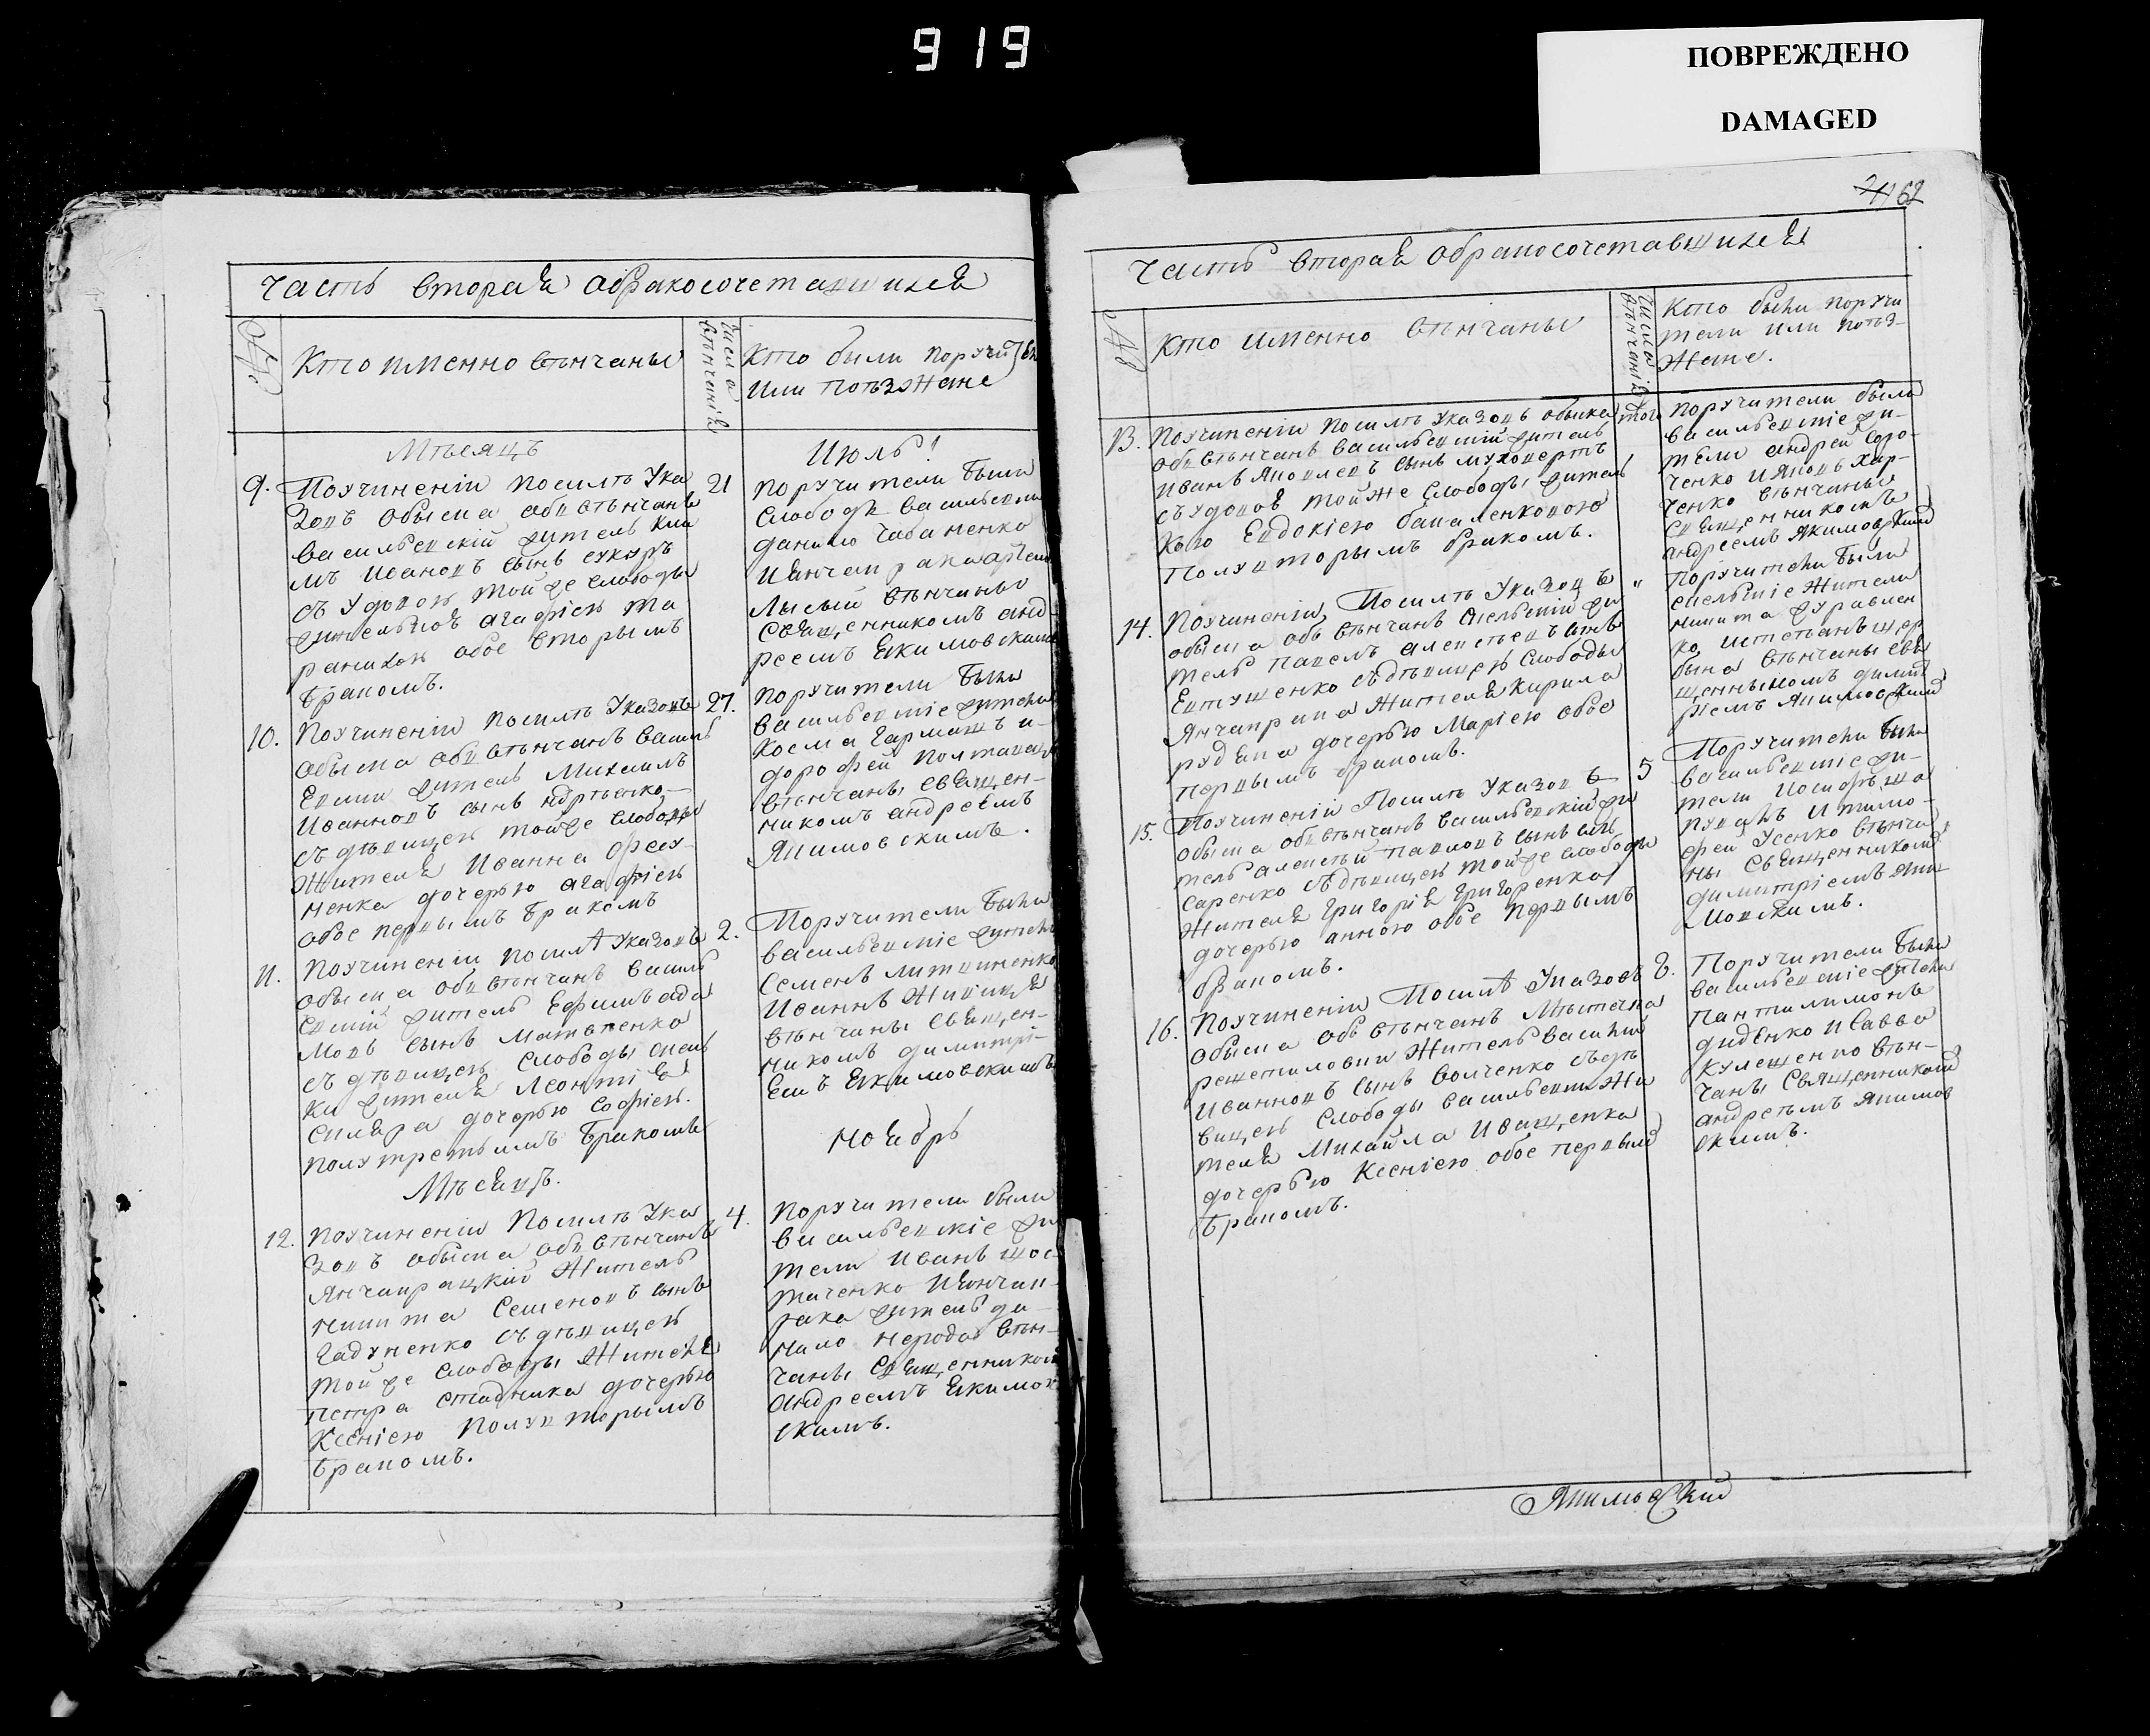 919
ПОВРЕЖДЕНО
DAMAGED
часть вторая обракосочетавшихся
№
Кто именно вѣнчаны
числа вѣнчанія
Кто были поручи
или поѣзжане
Мѣсяцъ
Июль
9.
Поучиненіи посилѣ Ука
зовъ обыска обвѣнчанъ
васильевскій житель
мъ Ивановъ сынъ
съ удовою тойже слободы
жительною агафіею
обое вторымъ
бракомъ.
21
поручители были
слободы васильевки
данило чабаненко
Лысый вѣнчаны
священникомъ анд
реемъ якимовскимъ
10.
Поучиненіи посилѣ Указовъ
обыска обвѣнчанъ василь
евки житель Михаилъ
Ивановъ сынъ
съ дѣвицею тойже слободы
жителя Иванна
ненка дочерью агафіею
обое первымъ бракомъ
27.
поручители были
васильевскіе жители
Косма гармашъ и
дорофей
вѣнчаны священ-
никомъ андреемъ
Якимовскимъ.
11.
Поучиненіи посилѣ Указовъ
обыска обвѣнчанъ василь
евскій житель Ефимъ ада
мовъ сынъ Матвѣенко
съ дѣвицею слободы
ки жителя Леонтія
дочерью Софіею.
полутретьимъ бракомъ
2.
Поручители были
васильевскіе жители
Семенъ литвиненко
Иванъ
вѣнчаны священ-
никомъ димитрі-
емъ якимовскимъ
Мѣсяцъ.
Ноябрь
12.
Поучиненіи Посилѣ Ука
зовъ обыска обвѣнчанъ
Янчикрацкій Житель
никита Семеновъ сынъ
гадуненко съ дѣвицею
тойже слободы Жителя
петра стадника дочерью
Ксеніею полувторымъ
бракомъ.
4.
поручители были
васильевскіе жи
тели Иванъ шос-
таченко Иянчик-
рака житель да-
нило нерода вѣн-
чаны священником
андреемъ якимов
скимъ.
62
часть вторая обракосочетавшихся
№
Кто именно вѣнчаны
числа вѣнчанія
Кто были поручи
тели или поѣз-
жане.
13.
Поучиненіи посилѣ Указовъ обыска
обвѣнчанъ васильевскій житель
Иванъ Яковлевъ сынъ
съ удовою тойже слободы житель
кою Евдокіею бакаленковою
полувторымъ бракомъ.
того
поручители были
васильевскіе жи-
тели андрей соро-
ченко и Яковъ хар-
ченко вѣнчаны
священникомъ
андреемъ Якимовским
14.
Поучиненіи Посилѣ Указовъ
обыска обвѣнчанъ скельскій жи
тель павелъ алексѣевъ сынъ
Евтушенко съ дѣвицею слободы
Янчикрака жителя Кирила
рудяка дочерью Маріею обое
первымъ бракомъ.
"
Поручители были
скельскіе жители
никита журавлен
ко, истепанъ щер
бина вѣнчаны свя
щенникомъ димит
ріемъ Якимовским
15.
Поучиненіи Посилѣ Указовъ
обыска обвѣнчанъ васильевскій жи
тель алексѣй павловъ сынъ
саренко съ дѣвицею тойже слободы
жителя григорія григоренка
дочерью анною обое первымъ
бракомъ.
5
Поручители были
васильевскіе жи-
тели Иосифъ
и тимо-
фей Усенко вѣнча
ны священником
димитріемъ яки
мовскимъ.
16.
Поучиненіи Посилѣ Указовъ
обыска обвѣнчанъ Мѣстечка
решетиловки Житель василій
Ивановъ сынъ волченко съ дѣ
вицею слободы васильевки жи
теля Михайла Иващенка
дочерью Ксеніею обое первым
бракомъ.
Поручители были
васильевскіе жители
пантилимонъ
диденко и Савва
Кулешенко вѣн-
чаны священником
андреемъ якимов
скимъ.
Якимовский